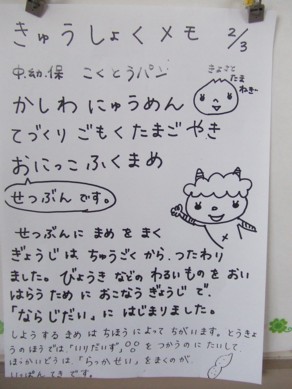 きゅうしょくメモ 2/3
中.幼.保 こくとうパン
きょさと
たま
ねぎ
かしわ にゅうめん
てづくり ごもくたまごやき
おにっこ ふくまめ
せつぶんです。
せつぶんに まめを まく
ぎょうじは ちゅうごくから、つたわり
ました。びょうき などの わるいものを おい
はらう ために おこなう ぎょうじで、
「ならじだい」に はじまりました。
しようする まめは ちほうによって ちがいます。とうきょ
うのほうでは「いりだいず」、をつかうのにたいして
ほっかいどうは、「らっかせい」をまくのが、
いっぱんてきです。